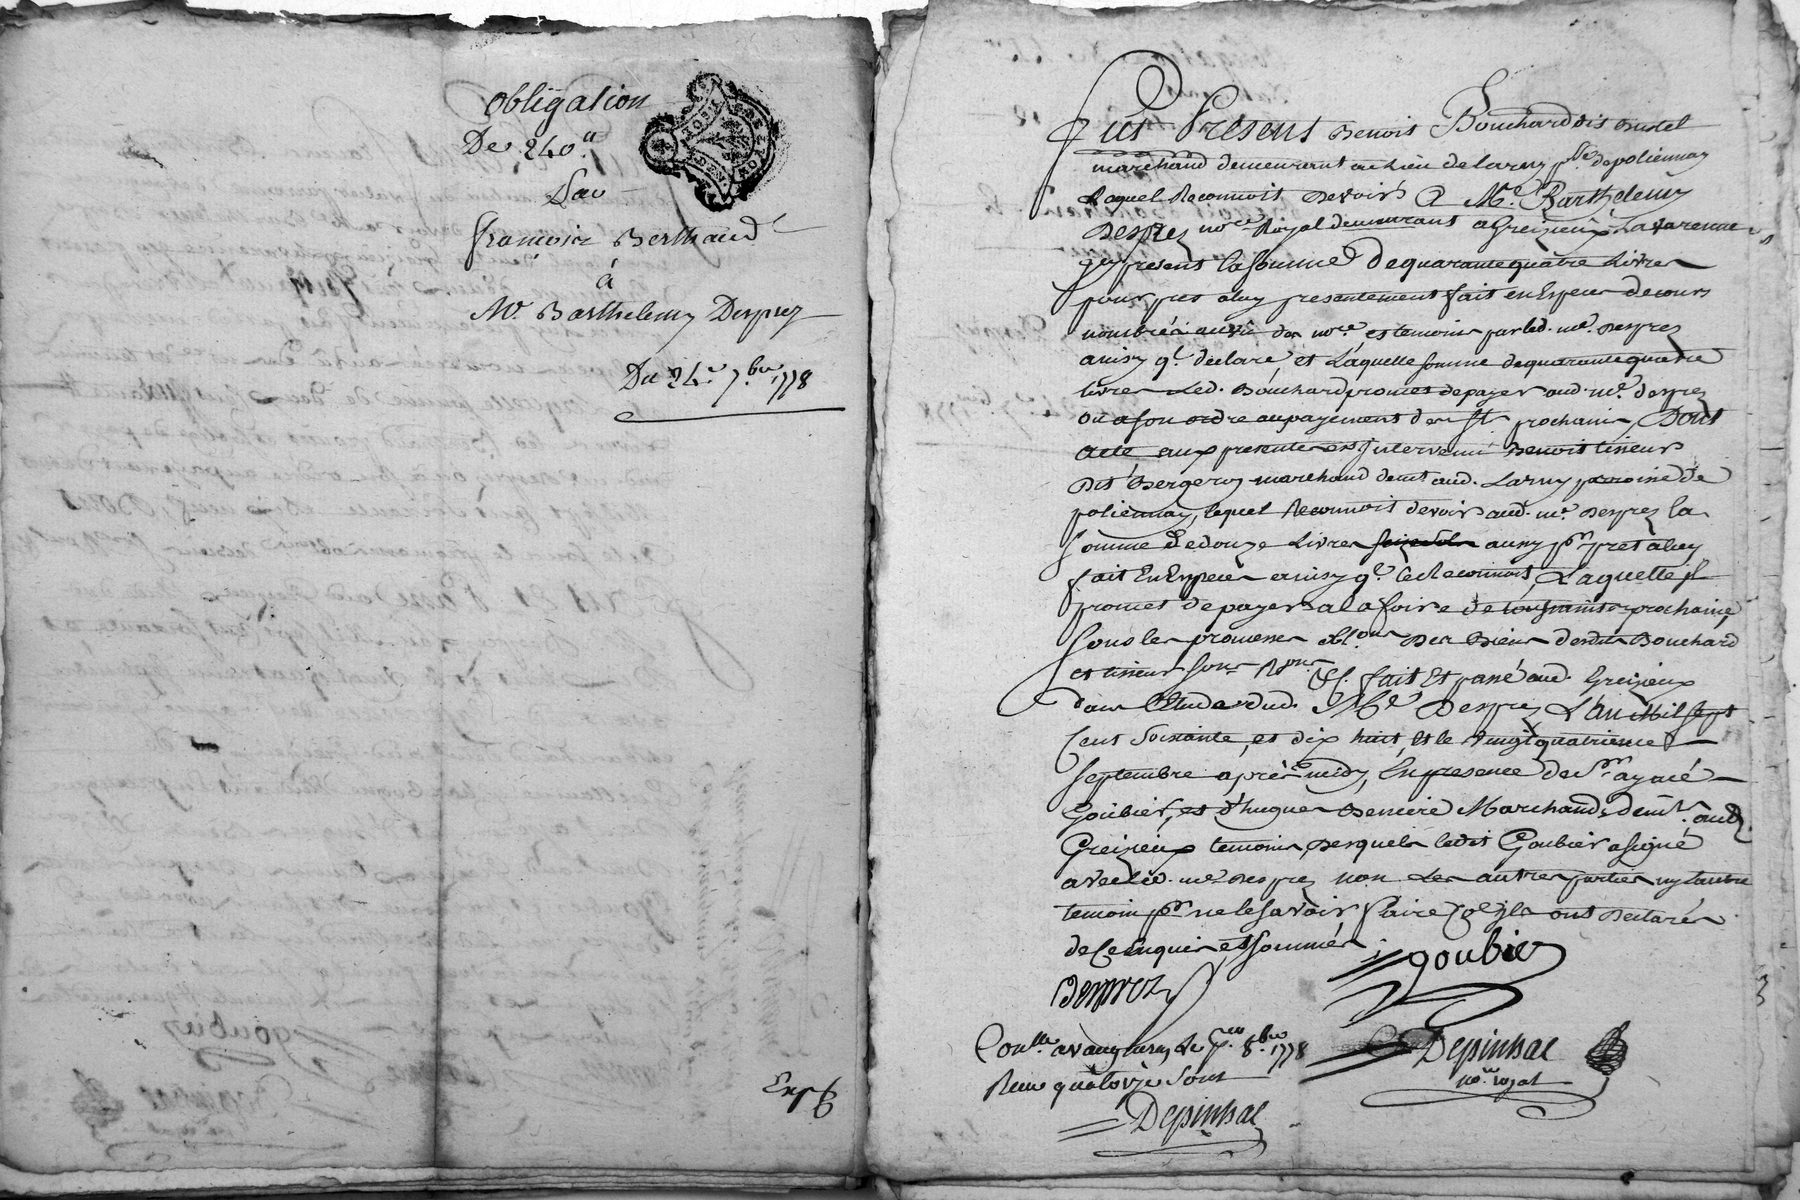 obligation
De 240.tt
Par
francois Berthaud
à
Mr. Barthelemy Desprez
Du 24.e 7.bre 1778
Exp
Fut Present Benoit Bouchard dit
marchand demeurant au lieu de Larny psse. de poliennay
Lequel Reconnoit Devoir A Me. Barthelemy
Desprez nore. Royal demeurant a Greizieux Lavarenne
icy present la somme De quarante quatre Livres
pour pret a luy presentement fait en Especes de cours
nombrée au vu des nore. et temoins par led. me. Desprez
ainsy ql. declare, et Laquelle somme de quarante quatre
livres Led. Bouchard promet de payer aud. me. desprez
ou a son ordre au payement des st prochain, Dont
acte aux presentes est Intervenu Benoit tisseur
dit Bergeron marchand demt aud. Larny paroisse de
poliennay, lequel Reconnoit devoir aud. me. Desprez la
somme De douze Livres aussy pr. pret a luy
fait En Especes ainsy ql. le Reconnoit, Laquelle il
promet de payer a la foire de toussaints prochaine,
sous les promesses obl.ons des Biens desdits Bouchard
et tisseur sous Ron.s &c. fait Et passé aud. Greizieux
dans L'Etude dud. Me Desprez L'an Mil sept
Cent Soixante, et dix huit, Et le vingt quatrieme
septembre après midy, En presence de Sr. aymé
Goubier, et d'hugues Marchands, demts. aud.
Greizieux temoins, Desquels ledit Goubier a signé
avec led. me Desprez non Les autres parties ny lautre
temoin pr ne le savoir faire Comme ils ont Declarés
de Ce Enquis, et sommés
Desprez
goubier
Conlle. a vaugneray Le 8.bre 1778
Reçu quatorze sous
Depinhac
nore royal
Depinhac